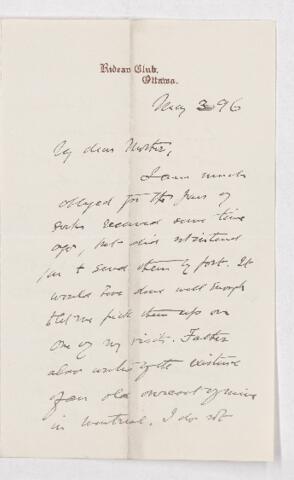 Rideau Club,
Ottawa.
May 3 96
My dear Mother,
I am much
obliged for the pair of
socks received some time
ago, but did not intend
you to send them by post. It
would have done well enough
to let me pick them up on
one of my visits. Father
also writes of the existence
of an old overcoat of mine
in Montreal. I do not